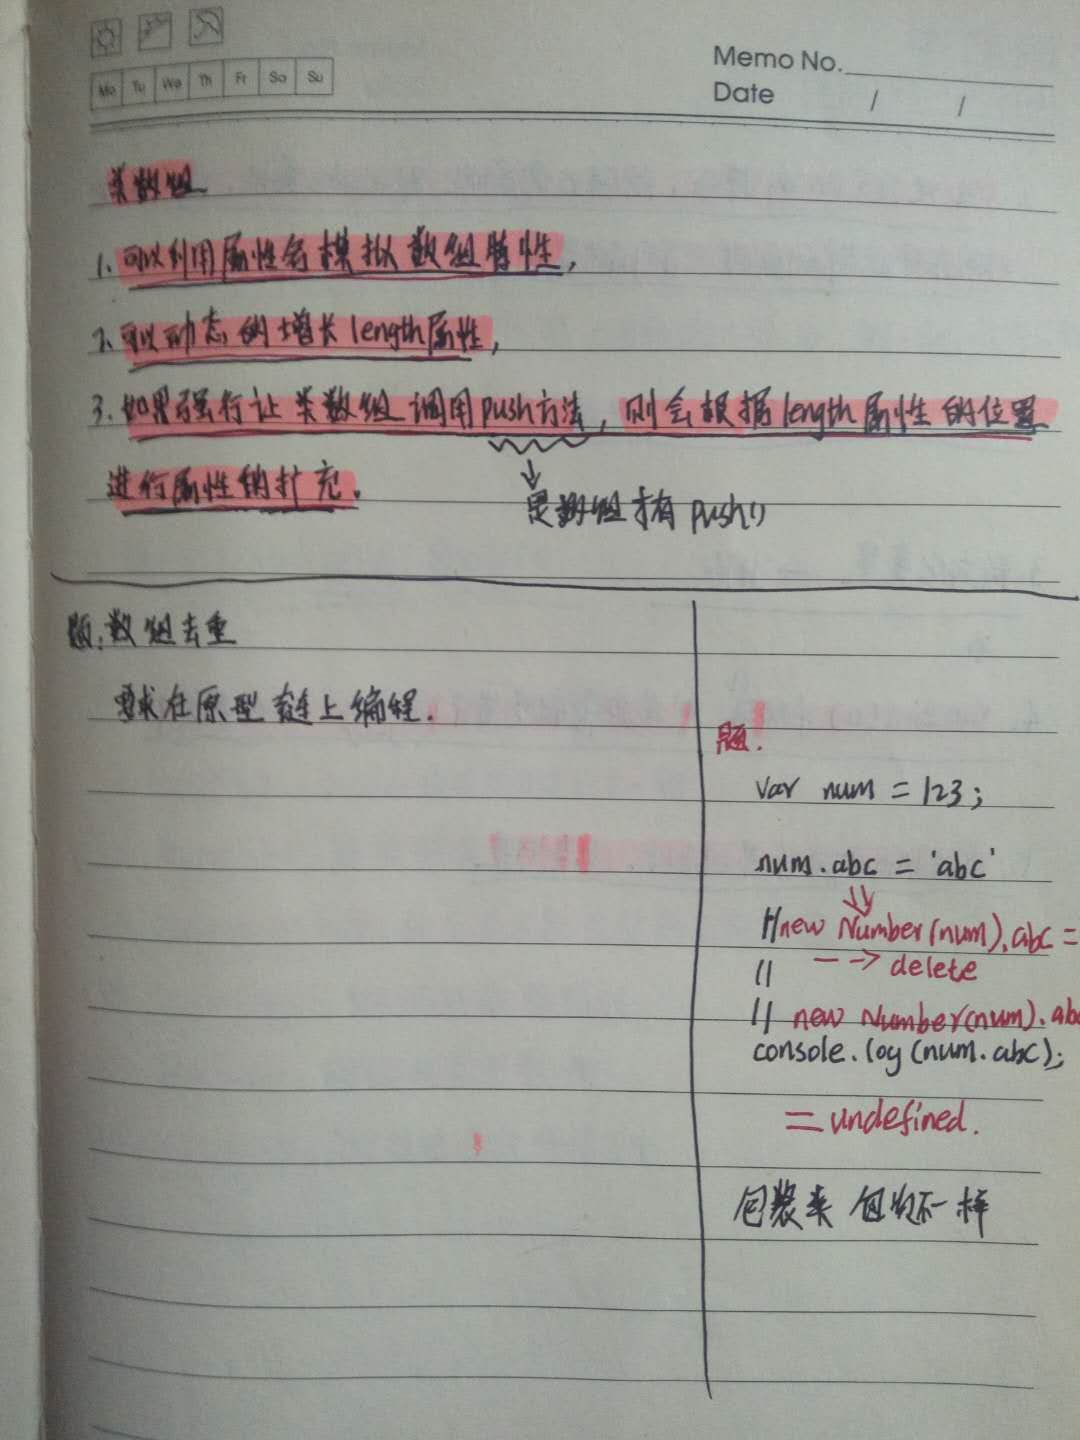 Mo Tu We Th Fr Sa Su
Memo No.
Date / /
类数组
1. 可以利用属性名模拟数组特性,
2. 可以动态的增长length属性,
3. 如果强行让类数组调用push方法, 则会根据length属性的位置
进行属性的扩充.
是数组才有push()
题:数组去重
要求在原型链上编程.
题.
var num = 123;
num.abc = 'abc'
//new Number(num).abc =
// --> delete
// new Number(num).abc
console.log(num.abc);
= undefined.
包装类